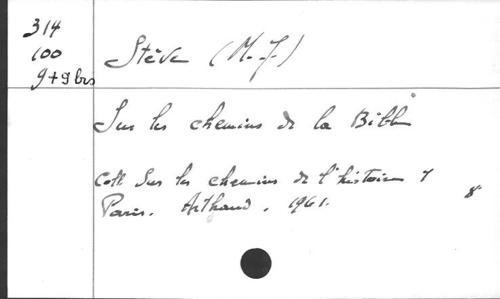 314
100
9+9 bis
Stève (M.-J.)
Sur les chemins de la Bible
Coll Sur les chemins de l'histoire 7
Paris. Arthaud. 1961. 8°